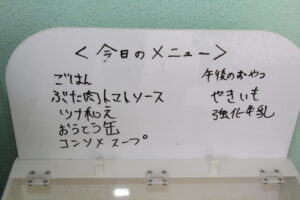 <今日のメニュー>
ごはん
ぶた肉トマトソース
ツナ和え
おうとう缶
コンソメスープ
午後のおやつ
やきいも
強化牛乳